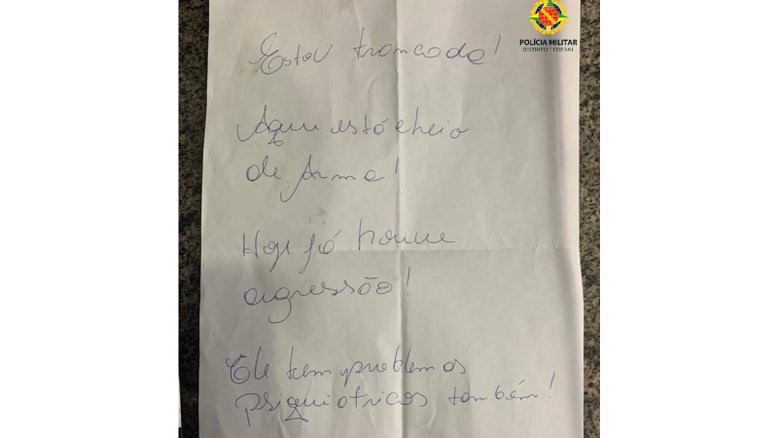 POLÍCIA MILITAR
DISTRITO FEDERAL
Estou trancada!
Aqui está cheio
de Arma!
Hoje já houve
agressão!
Ele tem problemas
psiquiatricos também!